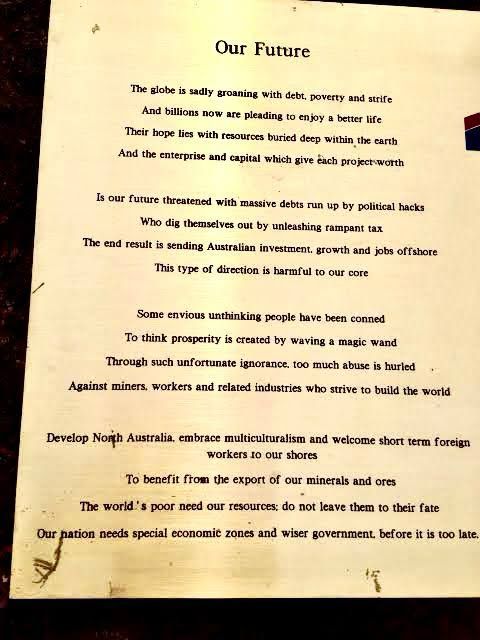 Our Future
The globe is sadly groaning with debt, poverty and strife
And billions now are pleading to enjoy a better life
Their hope lies with resources buried deep within the earth
And the enterprise and capital which give each project worth
Is our future threatened with massive debts run up by political hacks
Who dig themselves out by unleashing rampant tax
The end result is sending Australian investment, growth and jobs offshore
This type of direction is harmful to our core
Some envious unthinking people have been conned
To think prosperity is created by waving a magic wand
Through such unfortunate ignorance, too much abuse is hurled
Against miners, workers and related industries who strive to build the world
Develop North Australia, embrace multiculturalism and welcome short term foreign
workers to our shores
To benefit from the export of our minerals and ores
The world's poor need our resources; do not leave them to their fate
Our nation needs special economic zones and wiser government, before it is too late.